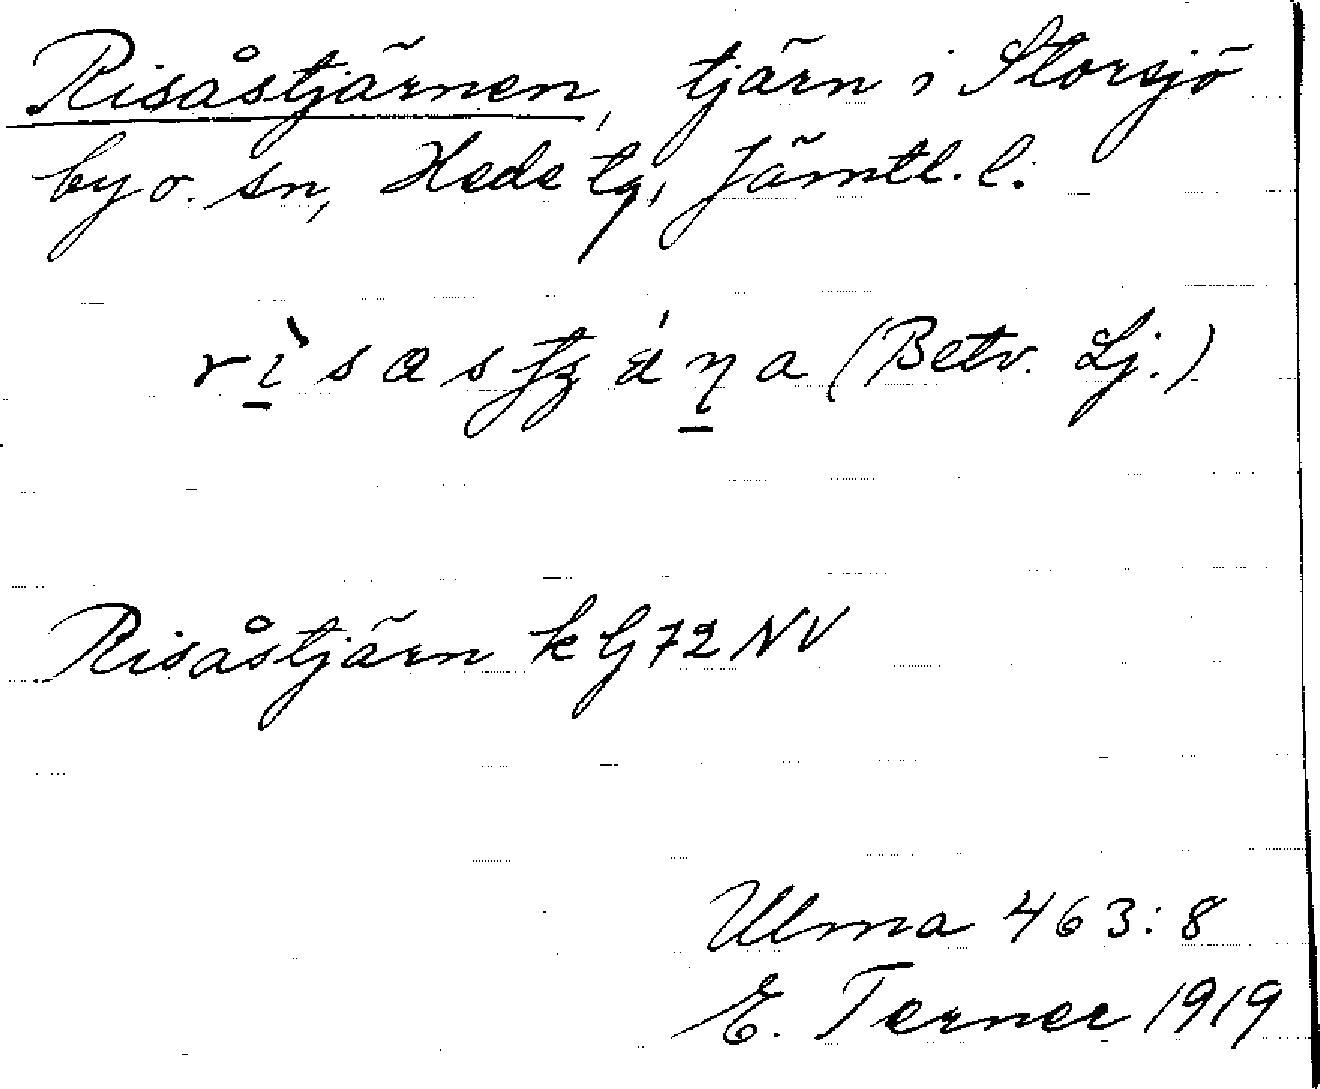 Risåstjärnen, tjärn i Storsjö
by o. sn, Hede tg, Jämtl. l.
(Betv. Lj.)
Risåstjärn k G 72 NV
Ulma 463:8
E. Terner 1919